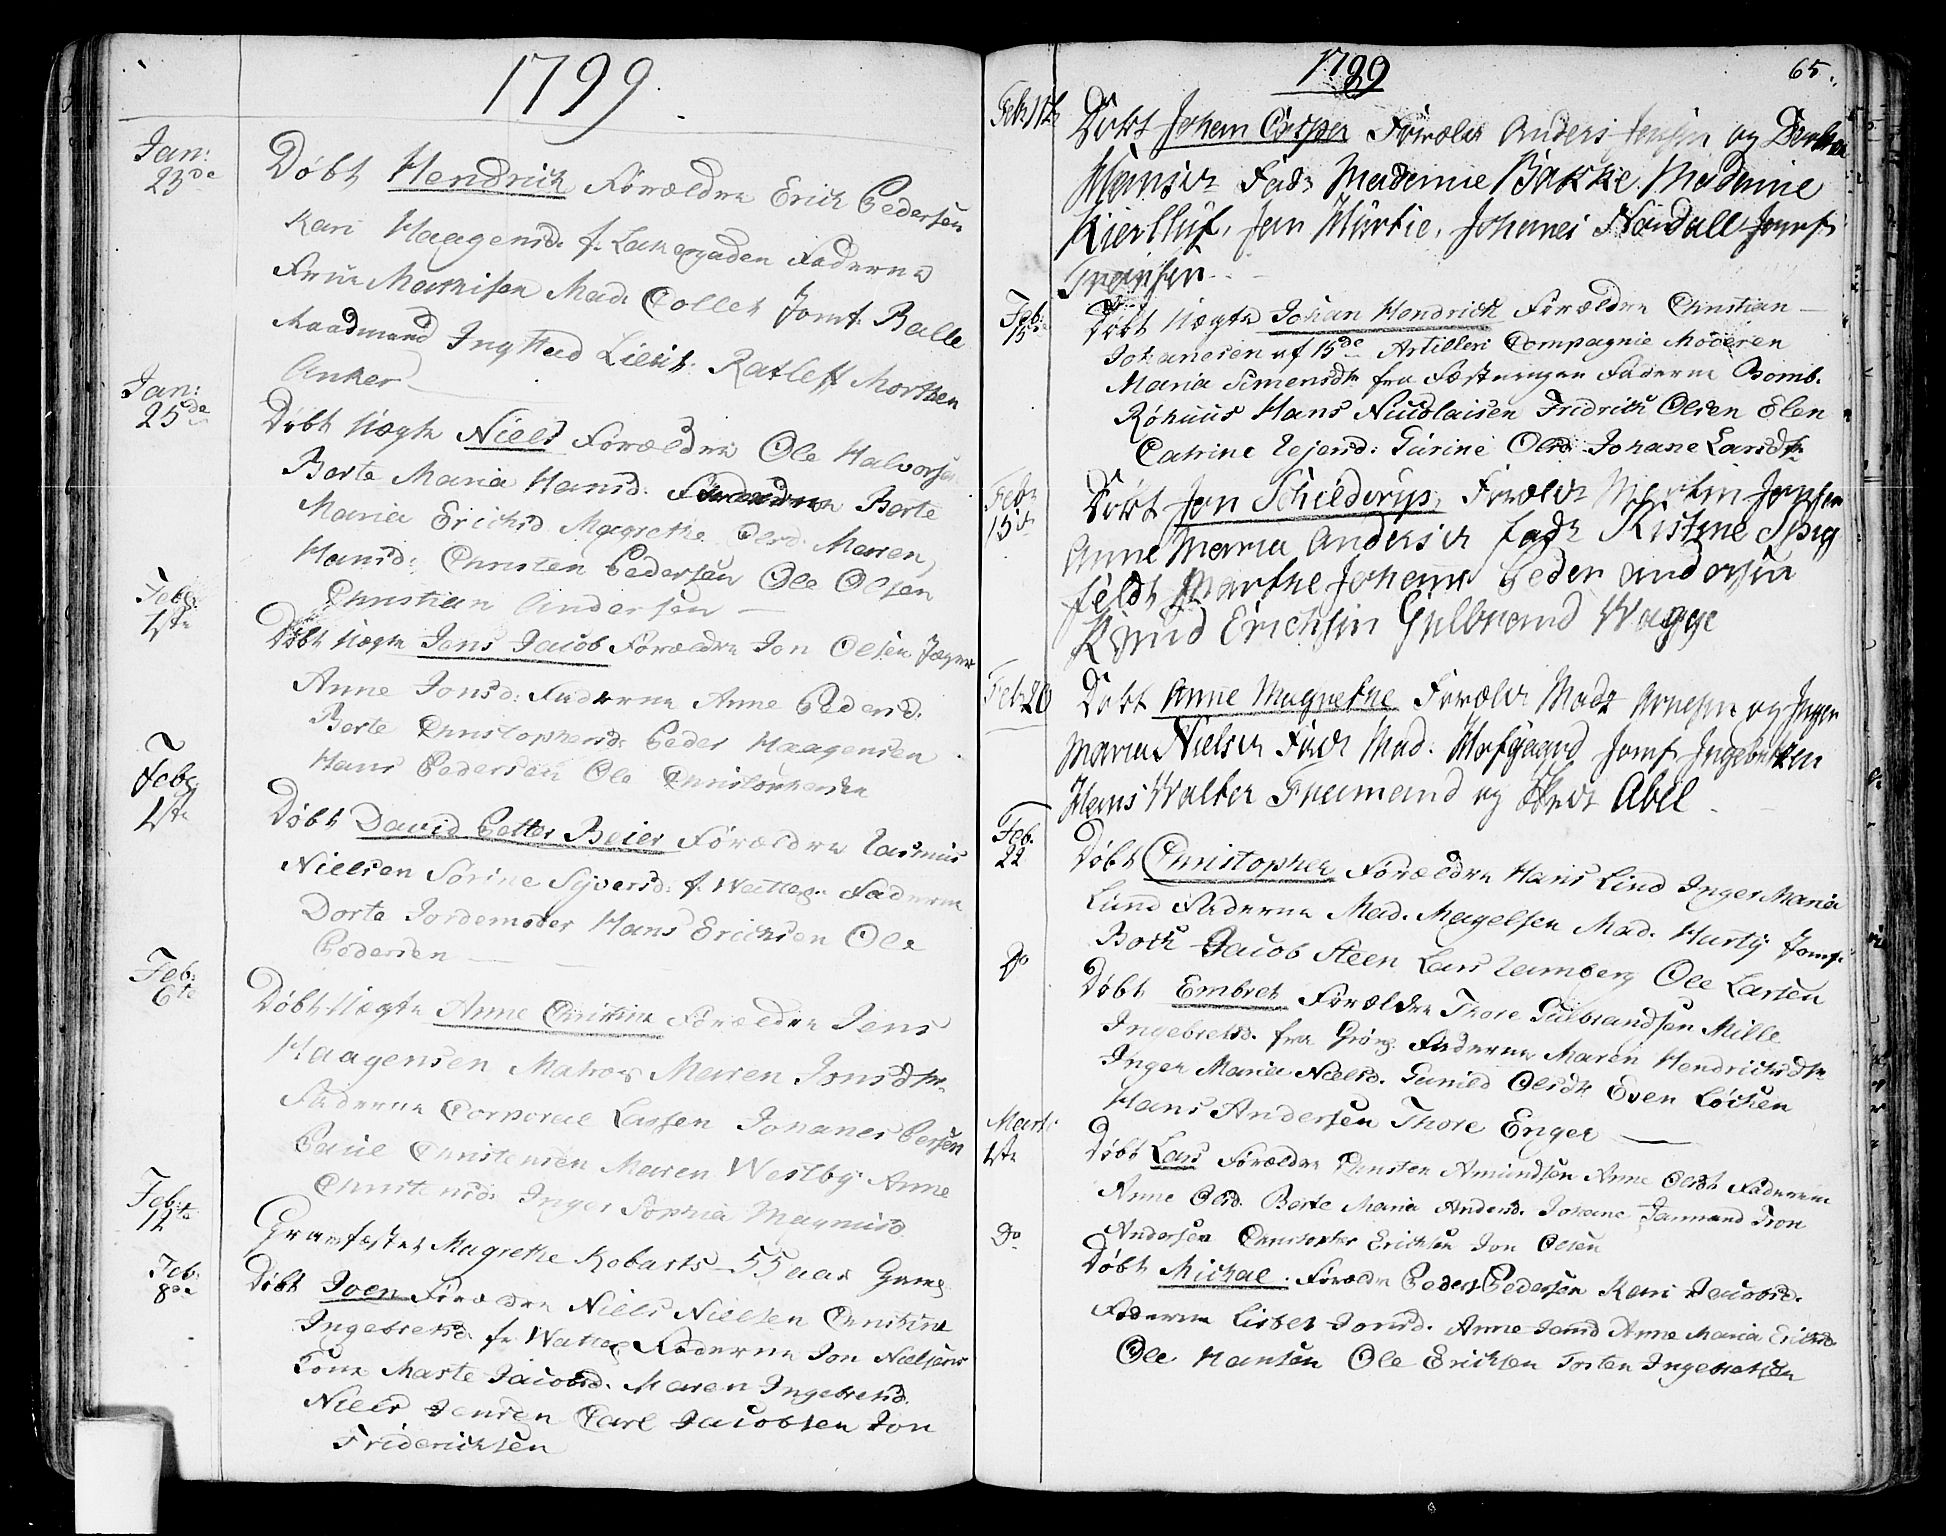 1799.
Jan:
23de
Døbt Hendrich Forældre Erich Pedersen
Kari Haagensd. f. Lakegaden Faderne
Frue Mathisen Mad. Collet Jomf. Balle
Raadmand Ingstad Lieut. Ratleff Morthen
Anker
Jan:
25de
Døbt Uægte Niels Forældre Ole Halvorsen
Berte Maria Hansd. Faderne Berte
Maria Erichsd. Magrethe Olsd. Maren
Hansd: Christen Pedersen Ole Olsen
Christian Andersen
Feb:
1ste
Døbt Uægte Jens Jacob Forældre Jon Olsen Jæger
Anne Jonsd: Faderne Anne Pedersd.
Berte Christophersd. Peder Haagensen
Hans Pedersen Ole Christophersen
Feb:
1ste
Døbt David Petter Beier Forældre Rasmus
Nielsen Sørine Syversd: f. Watteg. Faderne
Dorte Jordemoder Hans Erichsen Ole
Pedersen
Feb:
6te
Døbt Uægte Anne Christine Forældre Jens
Haagensen Matros Maren Jonsdtr.
Faderne Corporal Lassen Johanes Persen
Paul Christensen Maren Westby Anne
Christensd. Inger Sophia Magnusd.
Feb:
12te
Gramfæstet Magrethe Robarts 55 aar
Feb:
8de
Døbt Joen Forældre Niels Nielsen Christine
Ingebretsd. fr Watteg Faderne Jon Nielsens
Kone Marte Jacobsd. Maren Ingebretsd.
Niels Jensen Carl Jacobsen Jon
Friderichsen
1799
65.
Døbt Johan Casper Forældr Anders Jensen og Dorthea
Hansdr Fadr Madame Bakke, Madame
Kierlluf, Jan Hurtie, Johanes Nordall Jomf
Feb:
15de
Døbt Uægte Johan Hendrich Forældre Christian
Johanesen af 15de Artilleri Compagnie Moderen
Maria Simensdtr fra Fæstningen Faderne Bomb.
Røhuus Hans Nicolaisen Fridrich Olsen Elen
Catrine Vejersd: Gurine Olsd. Johane Larsdtr
Febr
15de
Døbt Jan Schielderup, Forældr Martin Jansen
Anne Maria Andersdr fadr Kistine Spig
feldt Marthe Johanne Peder Andersen
Knud Erichsen Gulbrand Wagge
Feb 20
Døbt Anne Magrethe Forældr Mads Arnesen og Inger
Maria Nielsdr Fadr Mad. Hofgaard Jomf. Ingebretsen
Hans Walter Grumand og Abel
Feb.
22
Døbt Christopher Forældre Hans Lind Inger Maria
Lund Faderne Mad. Magelsen Mad. Hurty Jomf.
Bock Jacob Steen Lars Ramberg Ole Larsen
Do
Døbt Embret Forældre Thore Gulbrandsen Mille
Ingebretsd. fra Grøng. Faderne Maren Hendrichsdtr
Inger Maria Nielsd. Gunild Olsdtr Even Løcken
Hans Andersen Thore Enger
Marti
1ste
Døbt Lars Forældre Christen Amundsen Anne Olsdtr Faderne
Anne Olsd. Berte Maria Andersd. Johane Jarmand Tron
Andersen Christopher Erichsen Jon Olsen
Do
Døbt Michael. Forældre Peder Pedersen Kari Jacobsd.
Faderne Lisbet Jonsd. Anne Jansd Anne Maria Erichsd.
Ole Hansen Ole Erichsen Torsten Ingebretsen